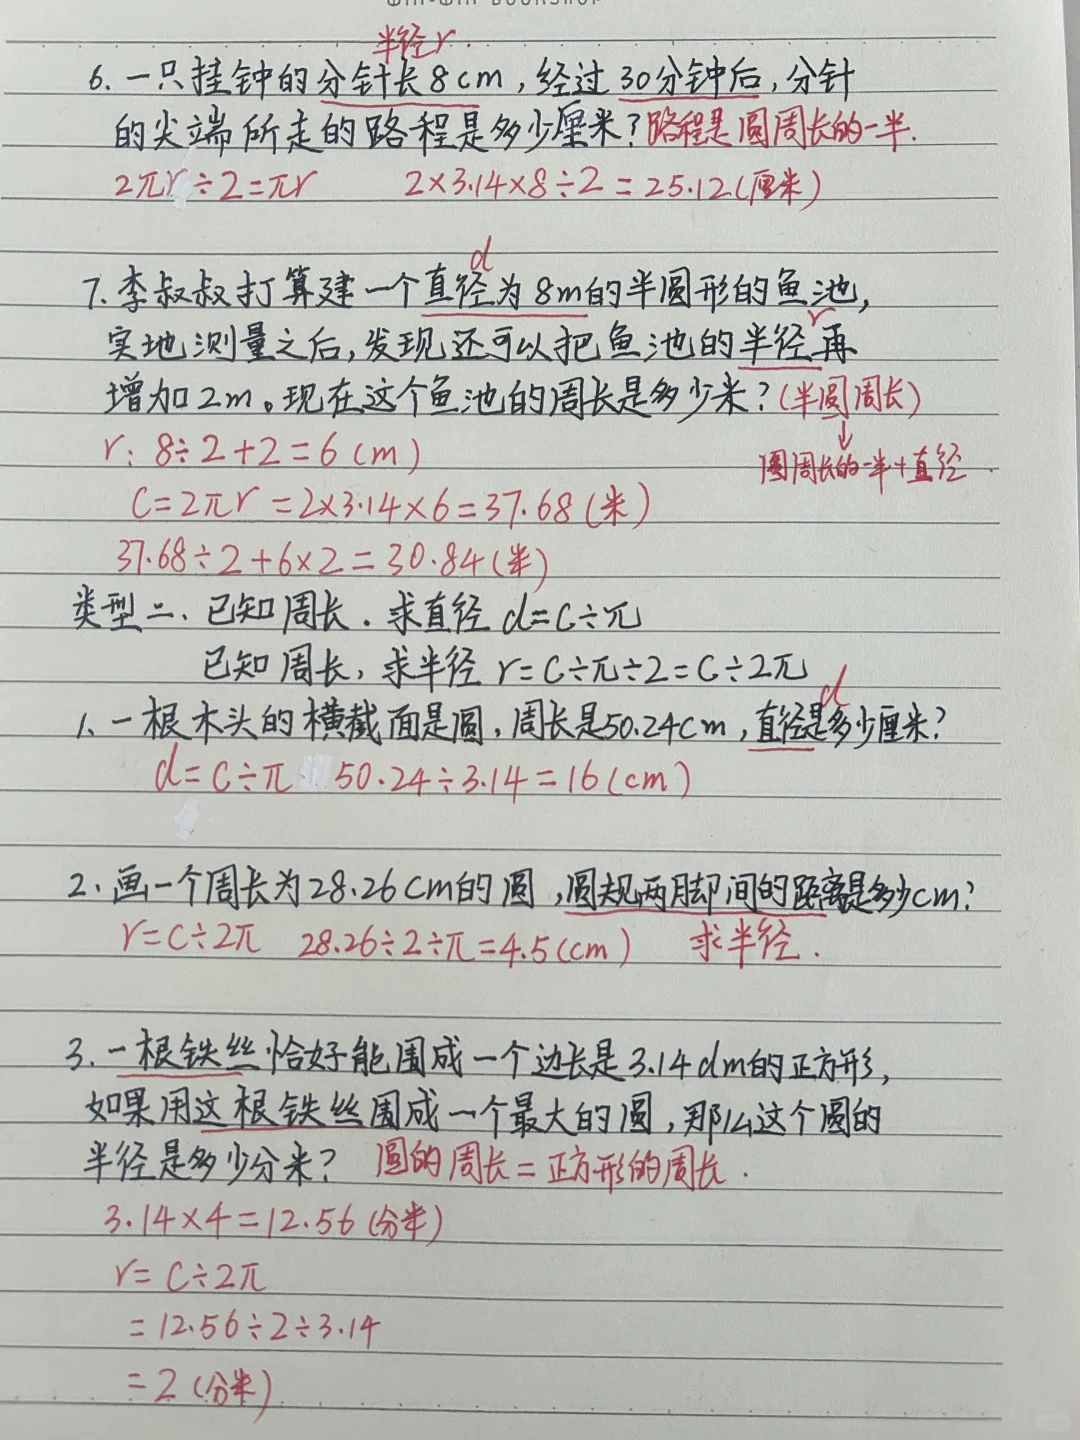 半径r.
6.一只挂钟的分针长8cm,经过30分钟后,分针
的尖端所走的路程是多少厘米?路程是圆周长的一半.
2πr÷2=πr 2×3.14×8÷2=25.12(厘米)
d
7.李叔叔打算建一个直径为8m的半圆形的鱼池,
r
实地测量之后,发现还可以把鱼池的半径再
增加2m。现在这个鱼池的周长是多少米?(半圆周长)
↓
r:8÷2+2=6(m) 圆周长的一半+直径
C=2πr=2×3.14×6=37.68(米)
37.68÷2+6×2=30.84(米)
类型二、已知周长.求直径 d=C÷π
已知周长,求半径 r=C÷π÷2=C÷2π
d
1.一根木头的横截面是圆,周长是50.24cm,直径是多少厘米?
d=C÷π 50.24÷3.14=16(cm)
2.画一个周长为28.26cm的圆,圆规两脚间的距离是多少cm?
r=C÷2π 28.26÷2÷π=4.5(cm) 求半径.
3.一根铁丝恰好能围成一个边长是3.14dm的正方形,
如果用这根铁丝围成一个最大的圆,那么这个圆的
半径是多少分米? 圆的周长=正方形的周长.
3.14×4=12.56(分米)
r=C÷2π
=12.56÷2÷3.14
=2(分米)